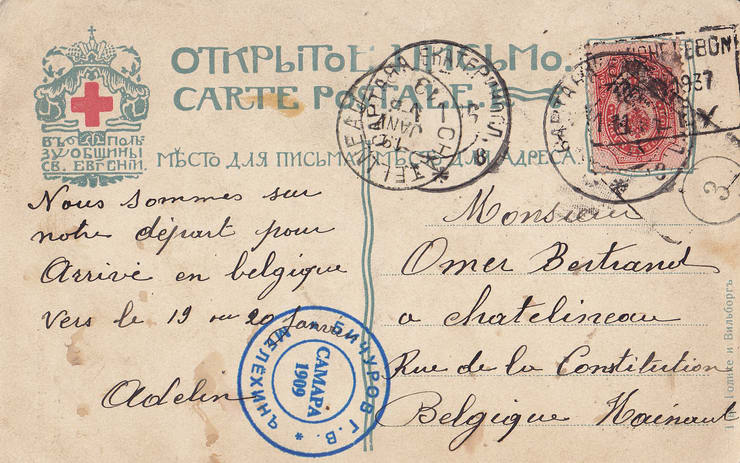 ОТКРЫТОЕ ПИСЬМО.
CARTE POSTALE.
ВЪ ПОЛЬ-
ЗУ ОБЩИНЫ
СВ. ЕВГЕНІИ.
МѢСТО ДЛЯ ПИСЬМА
МѢСТО ДЛЯ АДРЕСА
ЕКАТЕРИНОСЛ.
CHATELINEAU
JANV
1937
3
Nous sommes sur
notre départ pour
Arrivé en belgique
vers le 19 ou 20 Janvier
Adelin
Monsieur
Omer Bertrand
a chatelineau
Rue de la Constitution
Belgique Hainaut
БИЧУРОВ Г. В. * МЕЛЕХИНЪ
САМАРА
1909
Голике и Вильборгъ